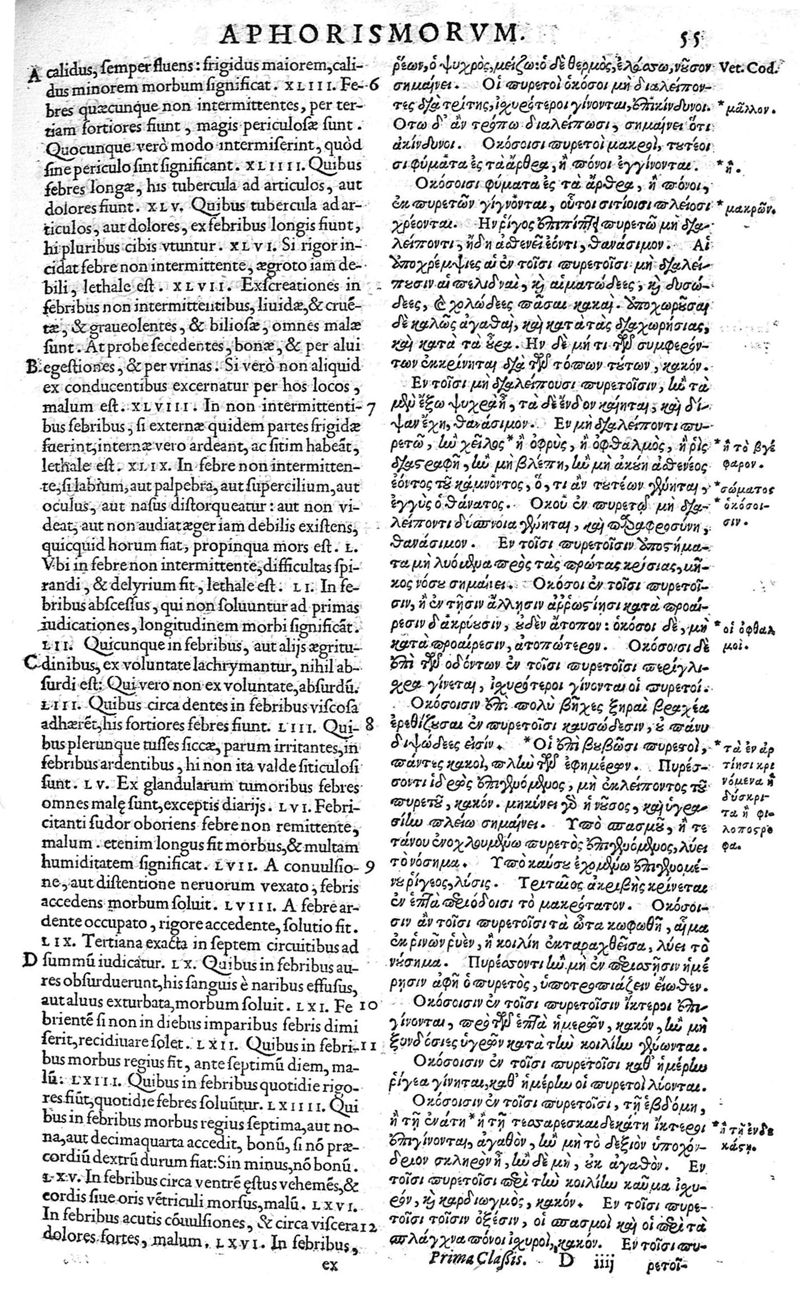 APHORISMORVM. 55
A calidus, semper fluens: frigidus maiorem, cali-
dus minorem morbum significat. XLIII. Fe- 6
bres quæcunque non intermittentes, per ter-
tiam fortiores fiunt, magis periculosæ sunt.
Quocunque verò modo intermiserint, quòd
sine periculo sint significant. XLIIII. Quibus
febres longæ, his tubercula ad articulos, aut
dolores fiunt. XLV. Quibus tubercula ad ar-
ticulos, aut dolores, ex febribus longis fiunt,
hi pluribus cibis vtuntur. XLVI. Si rigor in-
cidat febre non intermittente, ægroto iam de-
bili, lethale est. XLVII. Exscreationes in
febribus non intermittentibus, liuidæ, & cruē-
tæ, & graueolentes, & biliosæ, omnes malæ
sunt. At probe secedentes, bonæ, & per alui
B egestiones, & per vrinas. Si verò non aliquid
ex conducentibus excernatur per hos locos,
malum est. XLVIII. In non intermittenti- 7
bus febribus, si externæ quidem partes frigidæ
fuerint, internæ vero ardeant, ac sitim habeāt,
lethale est. XLIX. In febre non intermitten-
te, si labrum, aut palpebra, aut supercilium, aut
oculus, aut nasus distorqueatur: aut non vi-
deat, aut non audiat æger iam debilis existens,
quicquid horum fiat, propinqua mors est. L.
Vbi in febre non intermittente, difficultas spi-
randi, & delyrium fit, lethale est. LI. In fe-
bribus abscessus, qui non soluuntur ad primas
iudicationes, longitudinem morbi significāt.
LII. Quicunque in febribus, aut alijs ægritu-
C dinibus, ex voluntate lachrymantur, nihil ab-
surdi est: Qui vero non ex voluntate, absurdū.
LIII. Quibus circa dentes in febribus viscosa
adhærēt, his fortiores febres fiunt. LIII. Qui- 8
bus plerunque tusses siccæ, parum irritantes, in
febribus ardentibus, hi non ita valde siticulosi
sunt. LV. Ex glandularum tumoribus febres
omnes malę sunt, exceptis diarijs. LVI. Febri-
citanti sudor oboriens febre non remittente,
malum. etenim longus fit morbus, & multam
humiditatem significat. LVII. A conuulsio- 9
ne, aut distentione neruorum vexato, febris
accedens morbum soluit. LVIII. A febre ar-
dente occupato, rigore accedente, solutio fit.
LIX. Tertiana exacta in septem circuitibus ad
D summū iudicatur. LX. Quibus in febribus au-
res obsurduerunt, his sanguis è naribus effusus,
aut aluus exturbata, morbum soluit. LXI. Fe 10
brienté si non in diebus imparibus febris dimi
serit, recidiuare solet. LXII. Quibus in febri- 11
bus morbus regius fit, ante septimū diem, ma-
lū. LXIII. Quibus in febribus quotidie rigo-
res fiūt, quotidie febres soluūtur. LXIIII. Qui
bus in febribus morbus regius septima, aut no-
na, aut decimaquarta accedit, bonū, si nō præ-
cordiū dextrū durum fiat: Sin minus, nō bonū.
LXV. In febribus circa ventrē ęstus vehemēs, &
cordis siue oris vētriculi morsus, malū. LXVI.
In febribus acutis cōuulsiones, & circa viscera 12
dolores fortes, malum. LXVI. In febribus,
ex
ρέων, ὁ ψυχρὸς, μείζω: ὁ δὲ θερμὸς, ἐλάσσω, νοῦσον
σημαίνει. Οἱ πυρετοὶ ὁκόσοι μὴ διαλείπον-
τες διὰ τρίτης, ἰσχυρότεροι γίνονται, ἐπικίνδυνοι.
Ὅτῳ δ' ἂν τρόπῳ διαλείπωσι, σημαίνει ὅτι
ἀκίνδυνοι. Ὁκόσοισι πυρετοὶ μακροὶ, τουτέοι
σι φύματα ἐς τὰ ἄρθρα, ἢ πόνοι ἐγγίνονται.
Ὁκόσοισι φύματα ἐς τὰ ἄρθρα, ἢ πόνοι,
ἐκ πυρετῶν γίγνονται, οὗτοι σιτίοισι πλείοσι
χρέονται. Ἢν ῥῖγος ἐπιπίπτῃ πυρετῷ μὴ δια-
λείποντι, ἤδη ἀσθενεῖ ἐόντι, θανάσιμον. Αἱ
ὑποχρέμψιες αἱ ἐν τοῖσι πυρετοῖσι μὴ διαλεί-
πουσιν αἱ πελιδναὶ, καὶ αἱματώδεες, καὶ δυσώ-
δεες, καὶ χολώδεες πᾶσαι κακαί. Ὑποχωρεῦσαι
δὲ καλῶς ἀγαθαὶ, καὶ κατὰ τὰς διαχωρήσιας,
καὶ κατὰ τὰ οὖρα. Ἢν δὲ μή τι τῶν συμφερόν-
των ἐκκρίνηται διὰ τῶν τόπων τούτων, κακόν.
Ἐν τοῖσι μὴ διαλείπουσι πυρετοῖσιν, ἢν τὰ
μὲν ἔξω ψυχρὰ ᾖ, τὰ δὲ ἔνδον καίηται, καὶ δί-
ψαν ἔχῃ, θανάσιμον. Ἐν μὴ διαλείποντι πυ-
ρετῷ, ἢν χεῖλος * ἢ ὀφρὺς, ἢ ὀφθαλμὸς, ἢ ῥὶς
διαστραφῇ, ἢν μὴ βλέπῃ, ἢν μὴ ἀκούῃ ἀσθενέος
ἐόντος τοῦ κάμνοντος, ὅ, τι ἂν τουτέων γένηται,
ἐγγὺς ὁ θάνατος. Ὅκου ἐν πυρετῷ μὴ δια-
λείποντι δύσπνοια γένηται, καὶ παραφροσύνη,
θανάσιμον. Ἐν τοῖσι πυρετοῖσιν ἀποστήμα-
τα μὴ λυόμενα πρὸς τὰς πρώτας κρίσιας, μῆ-
κος νόσου σημαίνει. Ὁκόσοι ἐν τοῖσι πυρετοῖ-
σιν, ἢ ἐν τῇσιν ἄλλῃσιν ἀῤῥωστίῃσι κατὰ προαί-
ρεσιν δακρύουσιν, οὐδὲν ἄτοπον: ὁκόσοι δὲ, μὴ
κατὰ προαίρεσιν, ἀτοπώτερον. Ὁκόσοισι δὲ
ἐπὶ τῶν ὀδόντων ἐν τοῖσι πυρετοῖσι περίγλι-
χρα γίνεται, ἰσχυρότεροι γίνονται οἱ πυρετοί.
Ὁκόσοισιν ἐπὶ πολὺ βῆχες ξηραὶ βραχέα
ἐρεθίζουσαι ἐν πυρετοῖσι καυσώδεσιν, οὐ πάνυ
διψώδεές εἰσιν. * Οἱ ἐπὶ βουβῶσι πυρετοὶ,
πάντες κακοὶ, πλὴν τῶν ἐφημέρων. Πυρέσ-
σοντι ἱδρὼς ἐπιγενόμενος, μὴ ἐκλείποντος τοῦ
πυρετοῦ, κακόν. μηκύνει γὰρ ἡ νοῦσος, καὶ ὑγρα-
σίην πλείω σημαίνει. Ὑπὸ σπασμοῦ, ἢ τε
τάνου ἐνοχλουμένῳ πυρετὸς ἐπιγενόμενος, λύει
τὸ νόσημα. Ὑπὸ καύσου ἐχομένῳ ἐπιγενομέ-
νου ῥίγεος, λύσις. Τριταῖος ἀκριβὴς κρίνεται
ἐν ἑπτὰ περιόδοισι τὸ μακρότατον. Ὁκόσοι-
σιν ἂν τοῖσι πυρετοῖσι τὰ ὦτα κωφωθῇ, αἷμα
ἐκ ῥινῶν ῥυὲν, ἢ κοιλίη ἐκταραχθεῖσα, λύει τὸ
νούσημα. Πυρέσσοντι ἢν μὴ ἐν περισσῇσιν ἡμέ
ρῃσιν ἀφῇ ὁ πυρετὸς, ὑποτροπιάζειν εἴωθεν.
Ὁκόσοισιν ἐν τοῖσι πυρετοῖσιν ἴκτεροι ἐπι-
γίνονται, πρὸ τῶν ἑπτὰ ἡμερῶν, κακὸν, ἢν μὴ
ξυνδόσιες ὑγρῶν κατὰ τὴν κοιλίην γένωνται.
Ὁκόσοισιν ἐν τοῖσι πυρετοῖσι καθ' ἡμέρην
ῥίγεα γίνηται, καθ' ἡμέρην οἱ πυρετοὶ λύονται.
Ὁκόσοισιν ἐν τοῖσι πυρετοῖσι, τῇ ἑβδόμῃ,
ἢ τῇ ἐνάτῃ * ἢ τῇ τεσσαρεσκαιδεκάτῃ ἴκτεροι
ἐπιγίνονται, ἀγαθὸν, ἢν μὴ τὸ δεξιὸν ὑποχόν-
δριον σκληρὸν ᾖ, ἢν δὲ μὴ, οὐκ ἀγαθόν. Ἐν
τοῖσι πυρετοῖσι περὶ τὴν κοιλίην καῦμα ἰσχυ-
ρόν, καὶ καρδιωγμὸς, κακόν. Ἐν τοῖσι πυρε-
τοῖσι τοῖσιν ὀξέσιν, οἱ σπασμοὶ καὶ οἱ περὶ τὰ
σπλάγχνα πόνοι ἰσχυροὶ, κακόν. Ἐν τοῖσι πυ-
Prima Classis. D iiij ρετοῖ-
Vet. Cod.
* μᾶλλον.
* ἢ.
* μακρῶν.
* ἢ τὸ βλέ
φαρον.
* σώματος
* ὁκόσοι-
σιν.
* οἱ ὀφθαλ
μοί.
* τὰ ἐν ἀρ
τίῃσι κρι
νόμενα ἢ
δύσκρι
τα ἢ φι-
λοποστρο
φα.
* ἢ τῇ ἑνδε
κάτῃ.